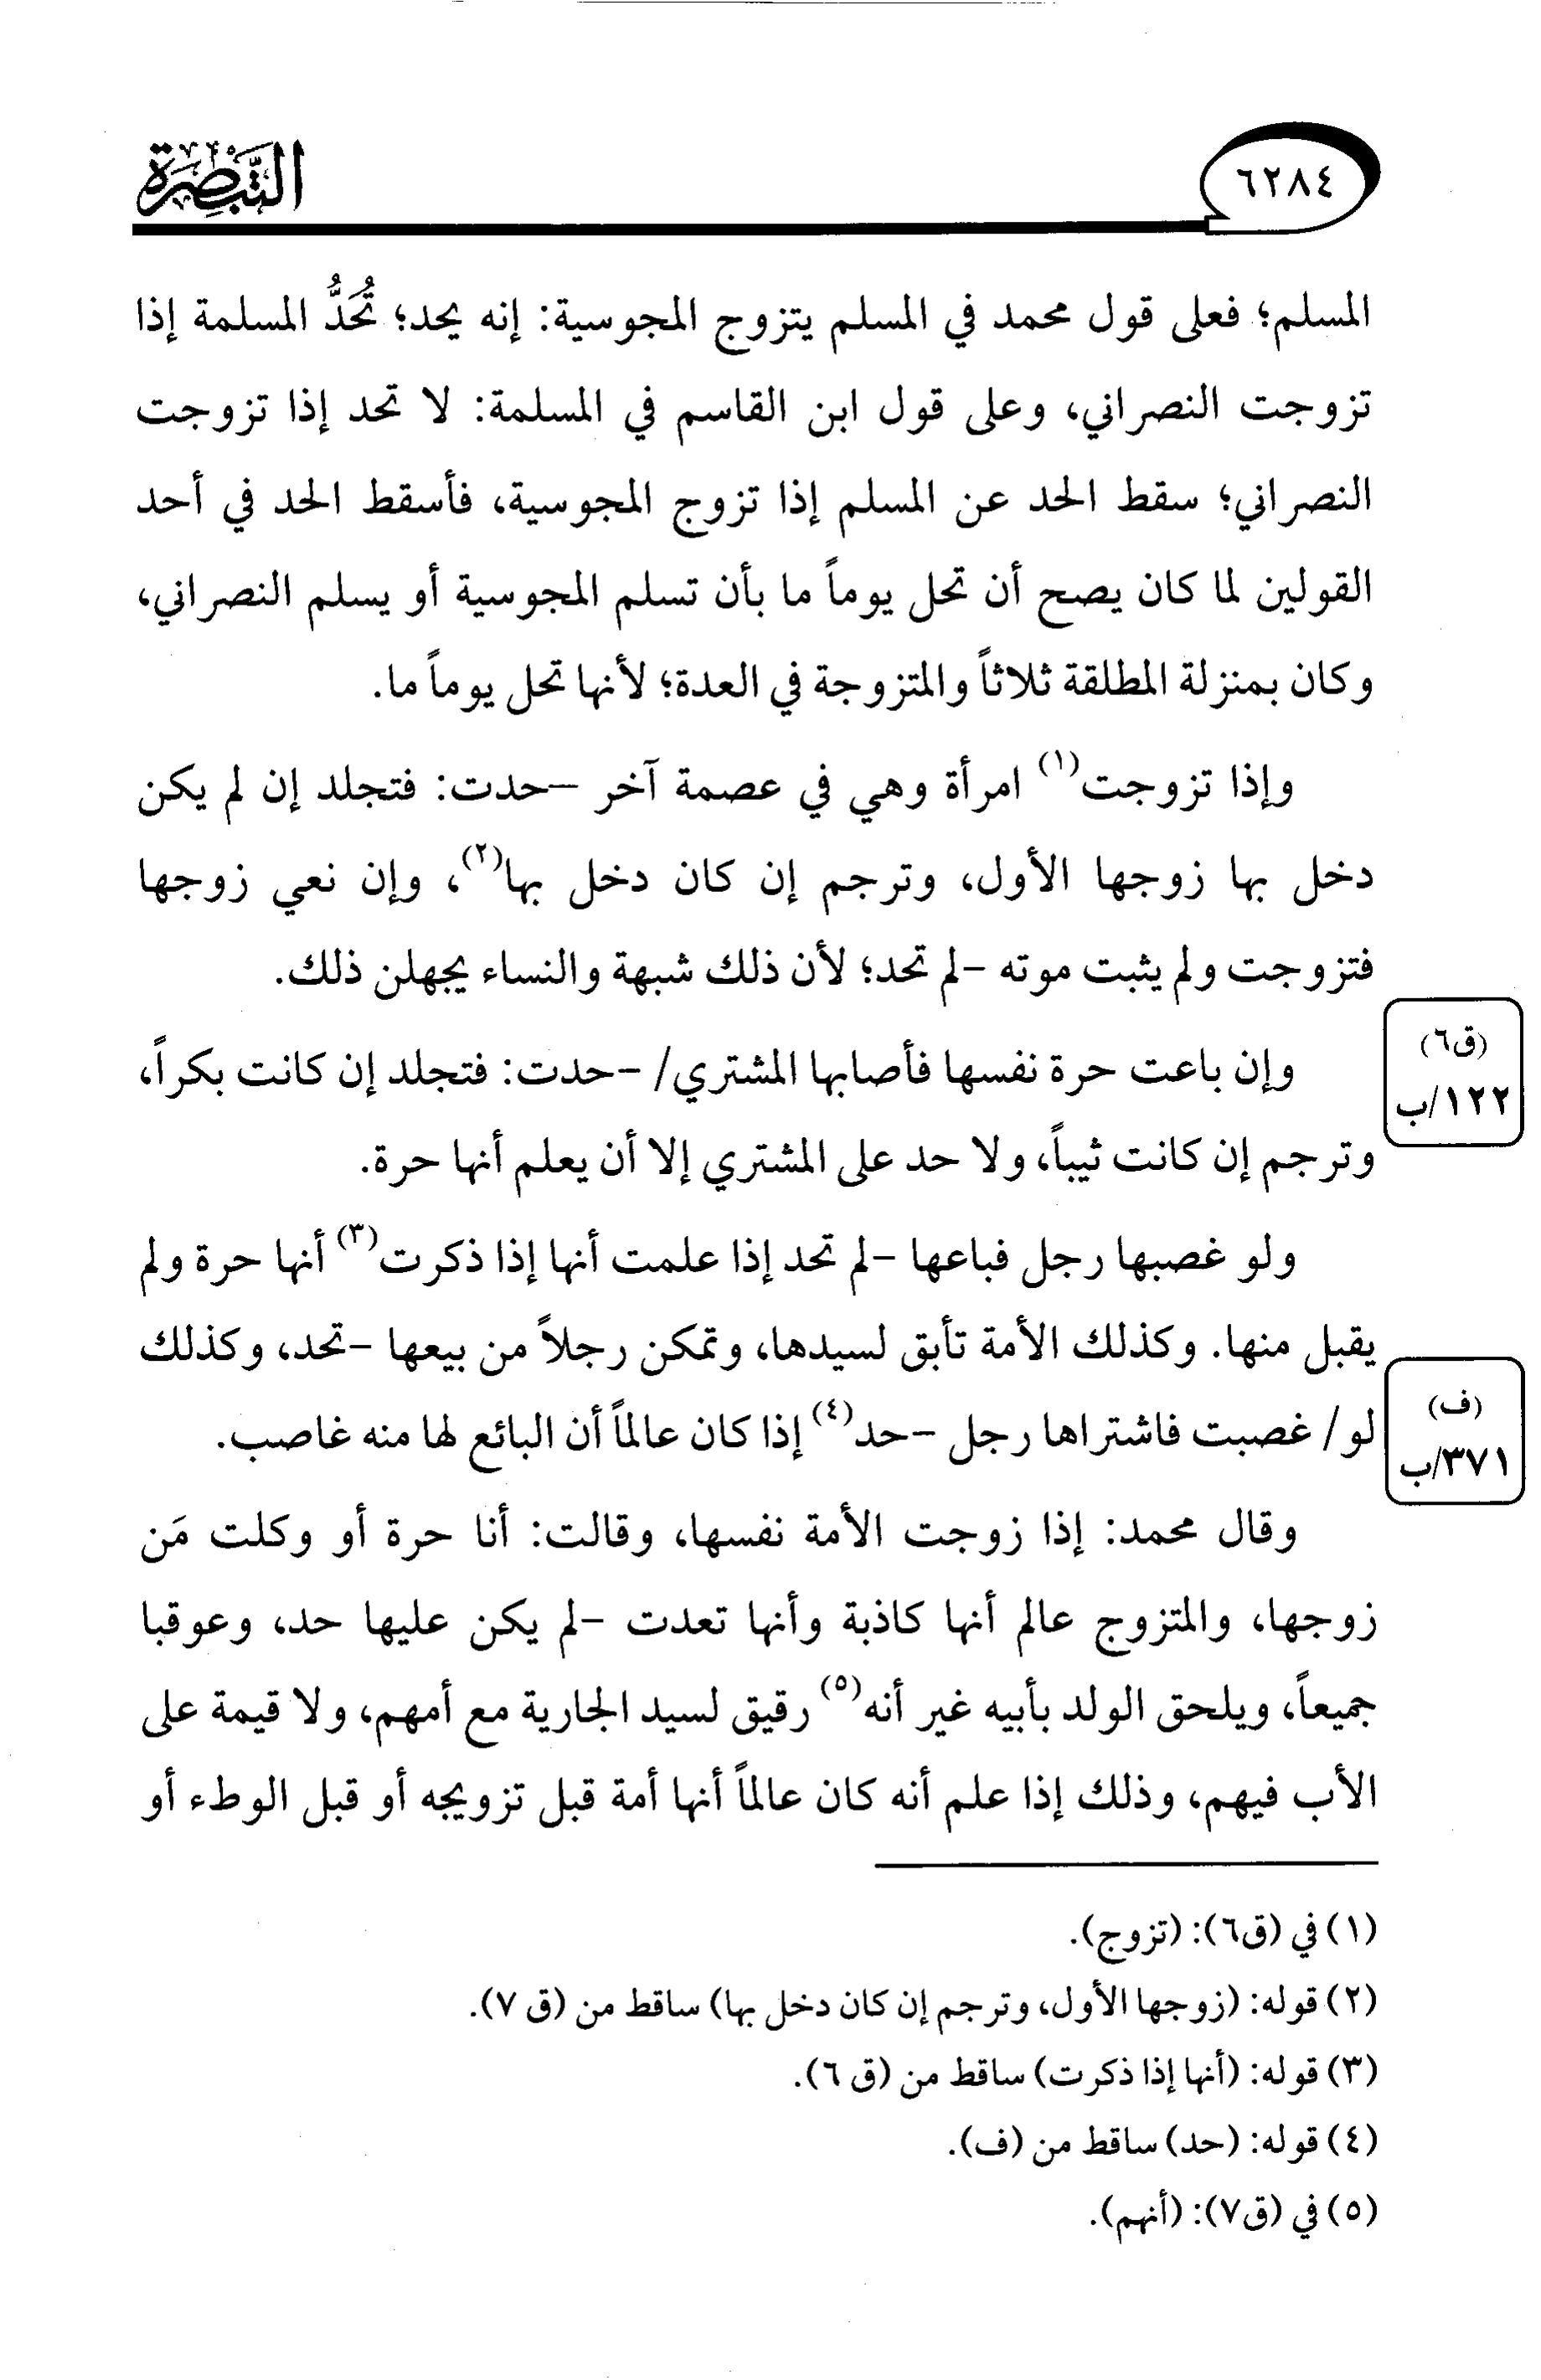 التبصرة
٦٢٨٤
المسلم؛ فعلى قول محمد في المسلم يتزوج المجوسية: إنه يحد؛ تُحَدُّ المسلمة إذا
تزوجت النصراني، وعلى قول ابن القاسم في المسلمة: لا تحد إذا تزوجت
النصراني؛ سقط الحد عن المسلم إذا تزوج المجوسية، فأسقط الحد في أحد
القولين لما كان يصح أن تحل يوماً ما بأن تسلم المجوسية أو يسلم النصراني،
وكان بمنزلة المطلقة ثلاثاً والمتزوجة في العدة؛ لأنها تحل يوماً ما.
وإذا تزوجت(١) امرأة وهي في عصمة آخر -حدت: فتجلد إن لم يكن
دخل بها زوجها الأول، وترجم إن كان دخل بها(٢)، وإن نعي زوجها
فتزوجت ولم يثبت موته -لم تحد؛ لأن ذلك شبهة والنساء يجهلن ذلك.
وإن باعت حرة نفسها فأصابها المشتري/ -حدت: فتجلد إن كانت بكراً،
(ق٦)
١٢٢/ب
وترجم إن كانت ثيباً، ولا حد على المشتري إلا أن يعلم أنها حرة.
ولو غصبها رجل فباعها -لم تحد إذا علمت أنها إذا ذكرت(٣) أنها حرة ولم
يقبل منها. وكذلك الأمة تأبق لسيدها، وتمكن رجلاً من بيعها -تحد، وكذلك
لو/ غصبت فاشتراها رجل -حد(٤) إذا كان عالماً أن البائع لها منه غاصب.
(ف)
٣٧١/ب
وقال محمد: إذا زوجت الأمة نفسها، وقالت: أنا حرة أو وكلت مَن
زوجها، والمتزوج عالم أنها كاذبة وأنها تعدت -لم يكن عليها حد، وعوقبا
جميعاً، ويلحق الولد بأبيه غير أنه(٥) رقيق لسيد الجارية مع أمهم، ولا قيمة على
الأب فيهم، وذلك إذا علم أنه كان عالماً أنها أمة قبل تزويجه أو قبل الوطء أو
(١) في (ق٦): (تزوج).
(٢) قوله: (زوجها الأول، وترجم إن كان دخل بها) ساقط من (ق ٧).
(٣) قوله: (أنها إذا ذكرت) ساقط من (ق ٦).
(٤) قوله: (حد) ساقط من (ف).
(٥) في (ق٧): (أنهم).